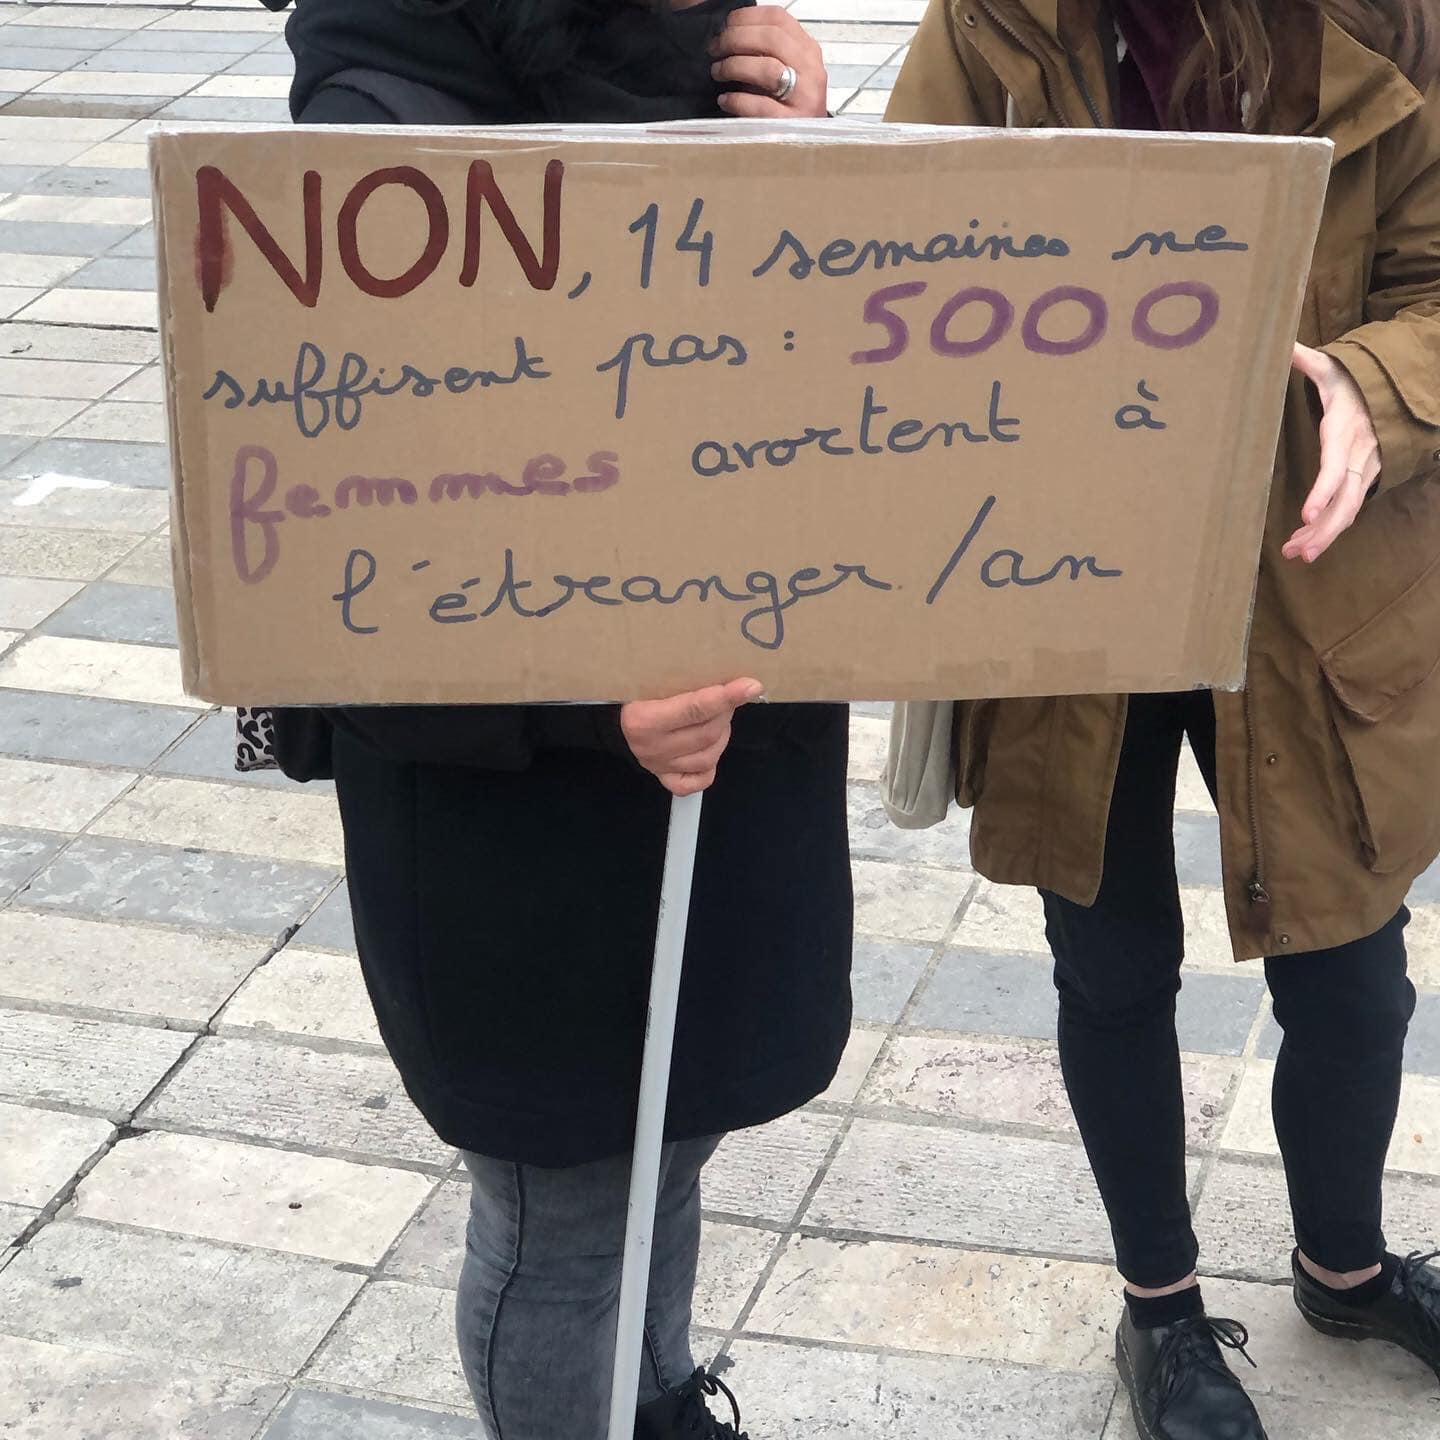 NON, 14 semaines ne
suffisent pas : 5000
femmes avortent à
l'étranger /an